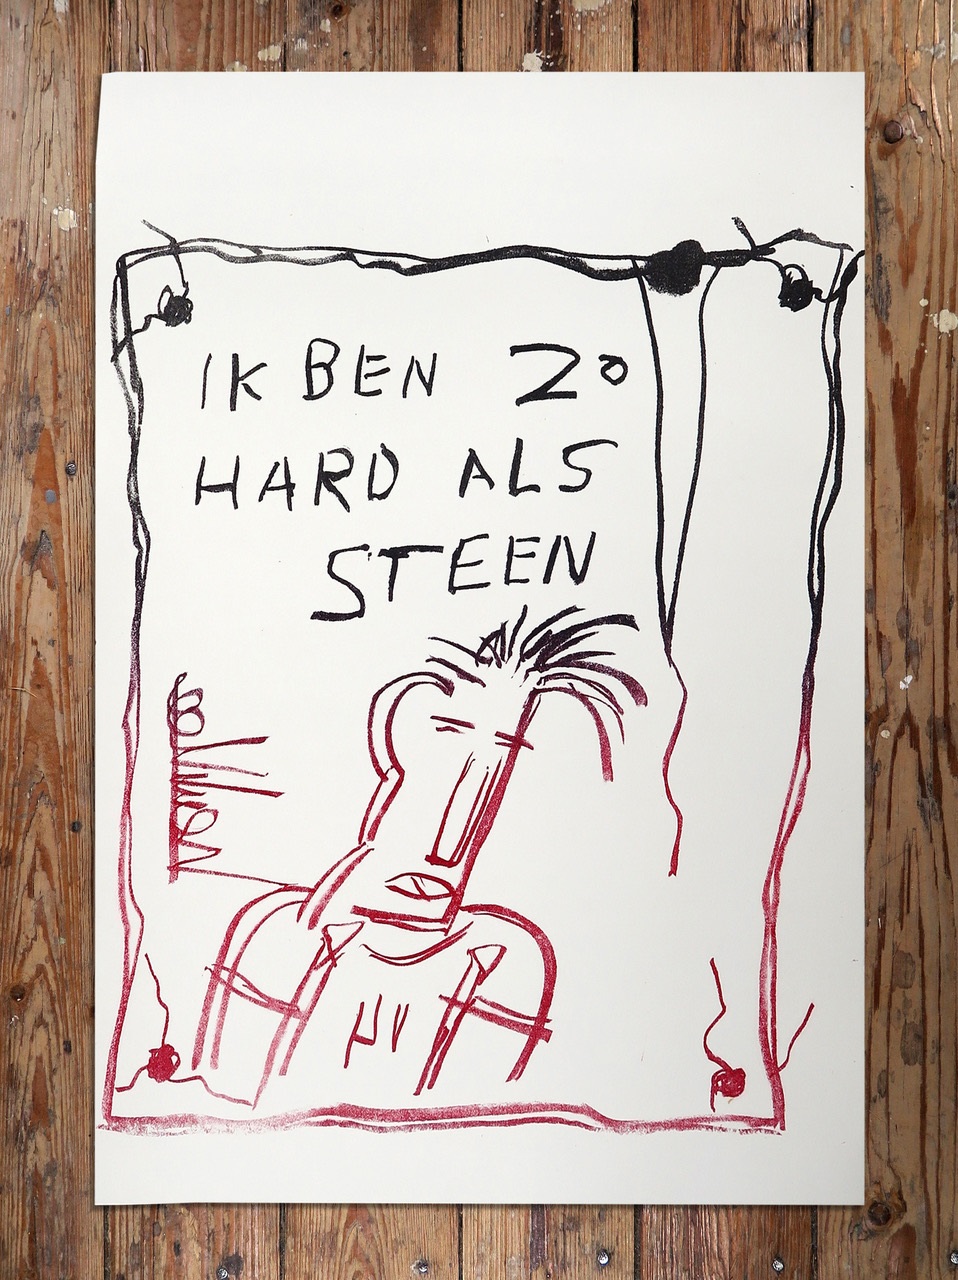 IK BEN ZO
HARD ALS
STEEN